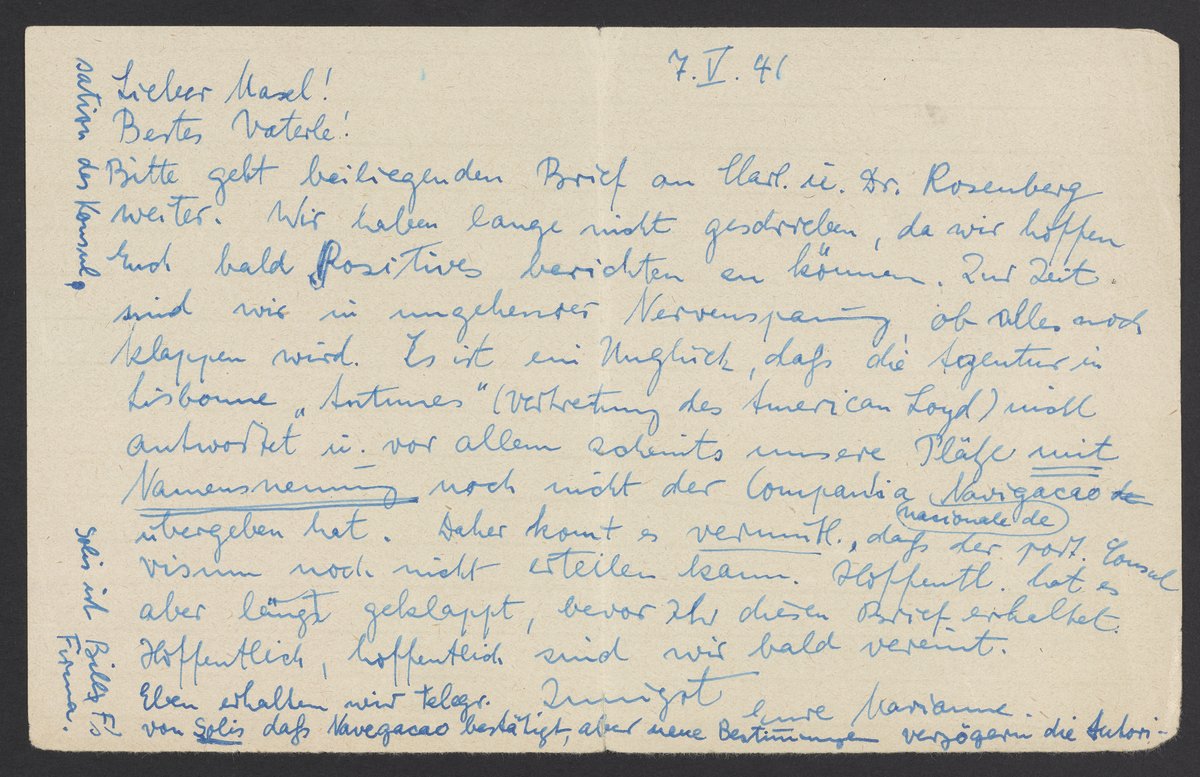 7. V. 41
Lieber Maxl!
Bestes Vaterle!
Bitte gebt beiliegenden Brief an Marl. u. Dr. Rosenberg
weiter. Wir haben lange nicht geschrieben, da wir hoffen
Euch bald Positives berichten zu können. Zur Zeit
sind wir in ungeheurer Nervenspannung, ob alles noch
klappen wird. Es ist ein Unglück, daſs die Agentur in
Lisbonne „Antunes" (Vertretung des American Loyd) nicht
antwortet u. vor allem scheints unsere Plätze mit
Namensnennung noch nicht der Compania Navigacao de
nacionale de
übergeben hat. Daher komt es vermutl., daſs der port. Consul
visum noch nicht erteilen kann. Hoffentl. hat es
aber längst geklappt, bevor Ihr diesen Brief erhaltet.
Hoffentlich, hoffentlich sind wir bald vereint.
Innigst
Eure Marianne.
Eben erhalten wir telegr.
von Solis daſs Navegacao bestätigt, aber neue Bestimmungen verzögern die Autori-
sation des Konsuls
Solis ist
Firma.